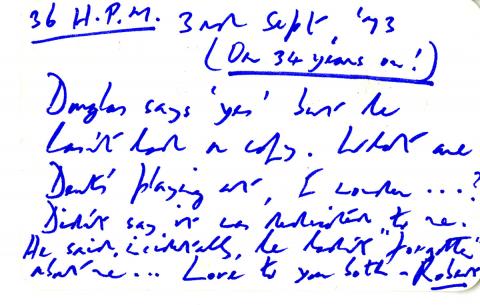 36 H.P.M. 3rd Sept. '73
(Or 34 years on!)
Douglas says 'yes' but he
hasn't had a copy. What are
Dents playing at, I wonder ...?
Didn't say it was dedicated to me.
He said, incidentally, he hadn't "forgotten"
about me ... Love to you both - Robert